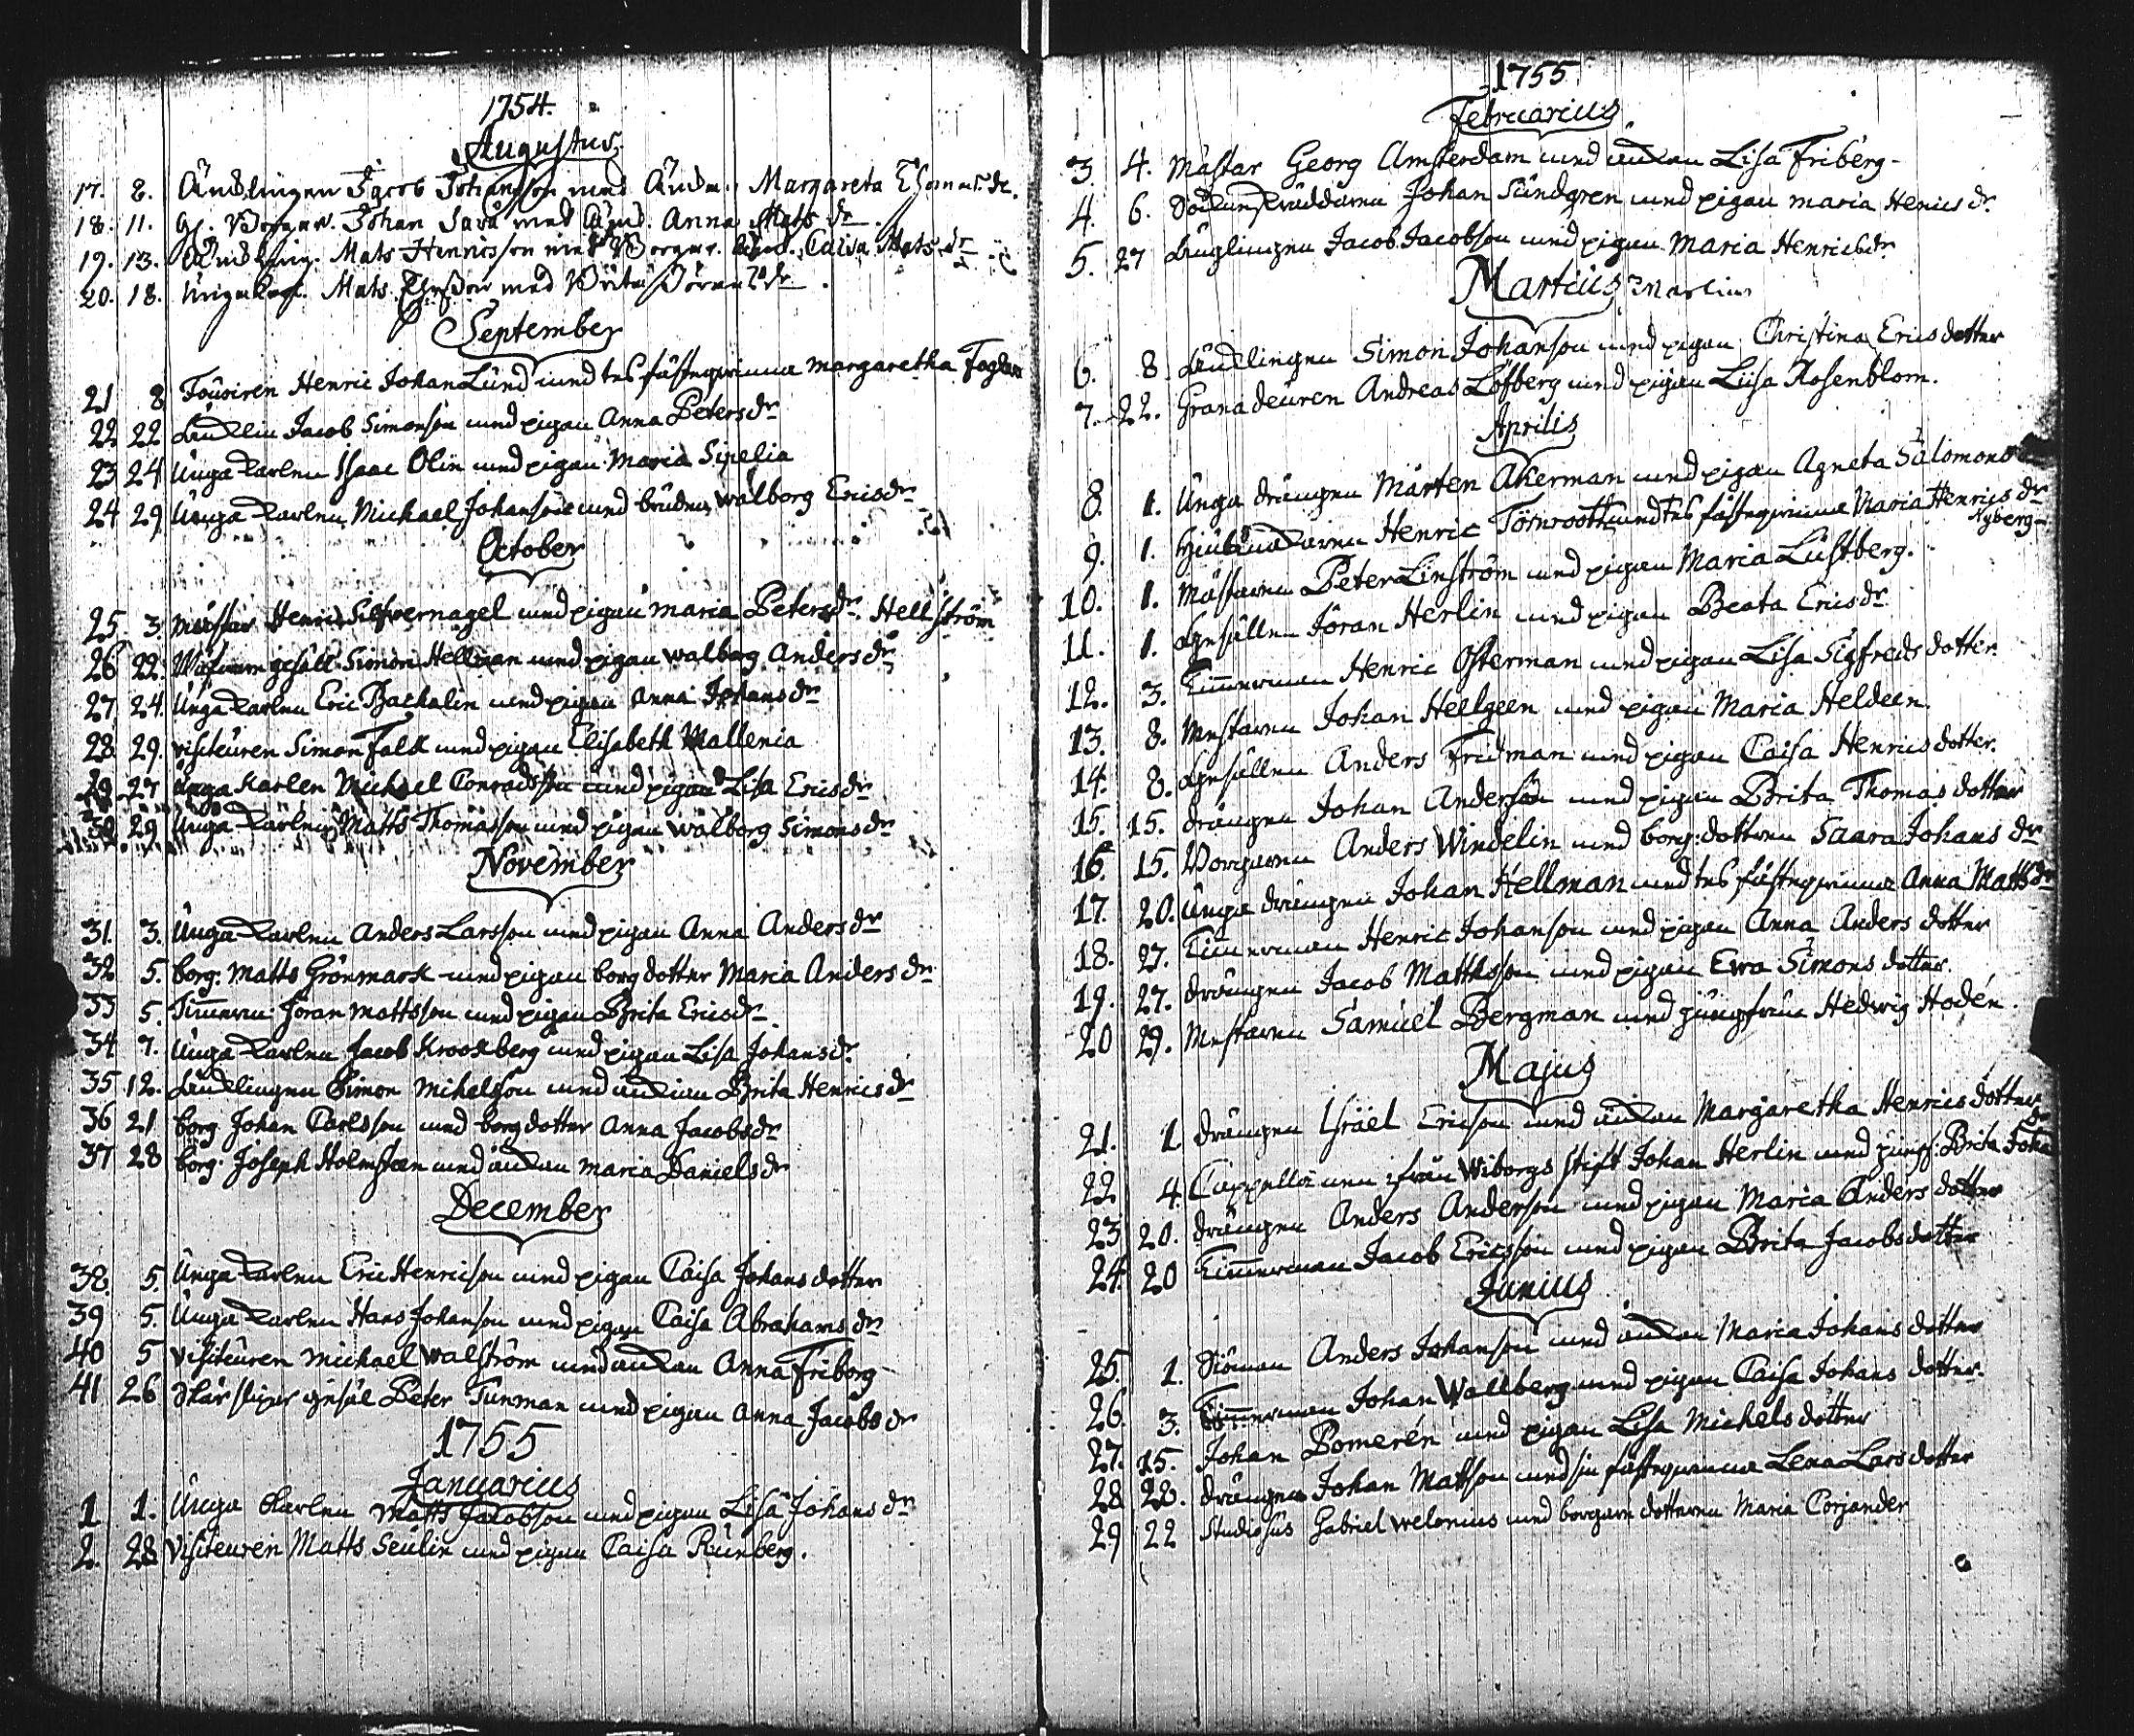 1754.
Augustus
17. 8. Änklingen Jacob Johansson med Änk. Margareta Thomasdr.
18. 11. Gl. Borgar. Johan Sara med Änk. Anna Mats dr
19. 13. Änkling. Mats Henricsson med Borgar. Caisa Mats dr
20. 18. Unga Karl. Mats med Brita Jöransdr
September
21 8 Henric Johan Lund med des fästeqwinna Margaretha Fogler
22 22 Änklin Jacob Simonson med pigan Anna Petersdr
23 24 Unga karlen Isaac Olin med pigan Maria Sipelia
24 29 Unga karlen Michael Johanson med bruden Walborg Ericsdr
October
25 3. Mästar Henric Silfvernagel med pigan Maria Petersdr. Hellström
26 22. gesäll Simon Hellman med pigan Walborg Andersdr
27 24. Unga karlen Eric Bachalin med pigan Anna Johansdr
28 29. Visiteuren Simon Falk med pigan Elisabeth Wallenia
29 27 Unga Karlen Michael Conradsson med pigan Lisa Ericsdr
30 29 Unga karlen Matts Thomasson med pigan Walborg Simonsdr
November
31. 3. Unga karlen Anders Larsson med pigan Anna Andersdr
32 5. borg. Matts Grönmark med pigan borg dotter Maria Andersdr
33 5. Timmerm: Jöran Mattsson med pigan Brita Ericsdr
34 7. Unga karlen Jacob Krookberg med pigan Lisa Johansdr
35 12. Änklingen Simon Michelsson med änkian Brita Henricsdr
36 21 borg Johan Carlsson med borg dotter Anna Jacobsdr
37 28 borg. Joseph Holmsteen med änkan Maria Danielsdr
December
38. 5. Unga karlen Eric Henricson med pigan Caisa Johansdotter
39 5. Unga karlen Hans Johanson med pigan Caisa Abrahamsdr
40 5 Visiteuren Michael Walström med änkan Anna Friborg
41 26 Skarslipar gesäl Peter Tunman med pigan Anna Jacobsdr
1755
Januarius
1 1. Unga Karlen Matts Jacobson med pigan Lisa Johansdr
2. 28 Visiteuren Matts Seulin med pigan Caisa Runberg.
1755
Februarius
3 4. Mästar Georg Amsterdam med änkan Lisa Friberg
4. 6. Sockenskräddaren Johan Sundgren med pigan Maria Henricsdr.
5. 27 Änglingen Jacob Jacobson med pigan Maria Henricsdr
Martius Martius
6. 8. Änklingen Simon Johanson med pigan Christina Ericsdotter
7. 22. Granadeuren Andreas Löfberg med pigan Lisa Rosenblom.
Aprilis
8. 1. Unga drängen Mårten Åkerman med pigan Agneta Salomons
9. 1. Henric Törnrooth med des fästeqwinna Maria Henricsdr
Nyberg
10. 1. Mästaren Peter Linström med pigan Maria Lustberg.
11. 1. Gesällen Jöran Herlin med pigan Beata Ericsdr
12. 3. Timmerman Henric Osterman med pigan Lisa Sigfreds dotter.
13. 8. Mästaren Johan Hellgeen med pigan Maria Heldeen.
14. 8. Gesällen Anders Fridman med pigan Caisa Henrics dotter.
15. 15. drängen Johan Anderson med pigan Brita Thomas dotter
16. 15. Borgaren Anders Windelin med borg: dottren Saara Johans dr
17. 20. Unga drängen Johan Hellman med des fästeqwinna Anna Mattsdr
18. 27. Timmerman Henric Johanson med pigan Anna Anders dotter
19. 27. drängen Jacob Matthsson med pigan Ewa Simons dotter.
20 29. Mästaren Samuel Bergman med jungfrun Hedwig Hodén.
Majus
21. 1 drängen Israel Ericson med änkan Margaretha Henrics dotter
dr
22 4. Capellanen ifrån Wiborgs stift Johan Herlin med jungf: Brita Joha
23 20. drängen Anders Anderson med pigan Maria Anders dotter
24 20 Timmerman Jacob Ericsson med pigan Brita Jacobsdotter
Junius
25. 1. Siöman Anders Johanson med änkan Maria Johans dotter
26. 3. Timmerman Johan Wallberg med pigan Caisa Johans dotter.
27. 15. Johan Bomerén med pigan Lisa Michels dotter
28 20. drängen Johan Mattson med sin fästeqwinna Lena Larsdotter
29 22 Studiosus Gabriel Welonius med borgare dotteren Maria Corjander